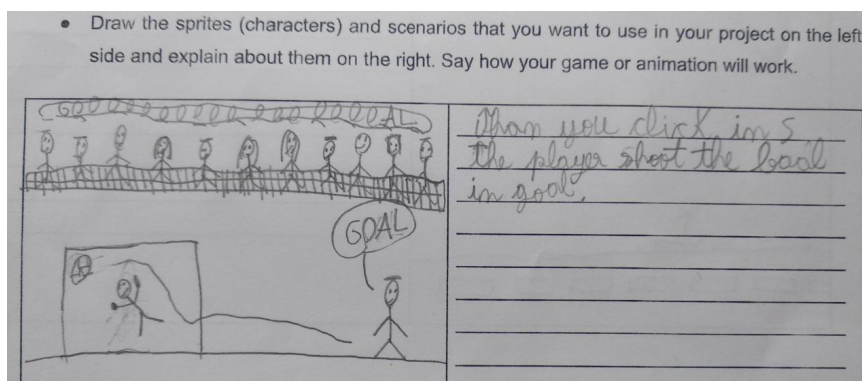 • Draw the sprites (characters) and scenarios that you want to use in your project on the left
side and explain about them on the right. Say how your game or animation will work.
GOAL
Whan you click in S
the player shoot the baal
in goal.